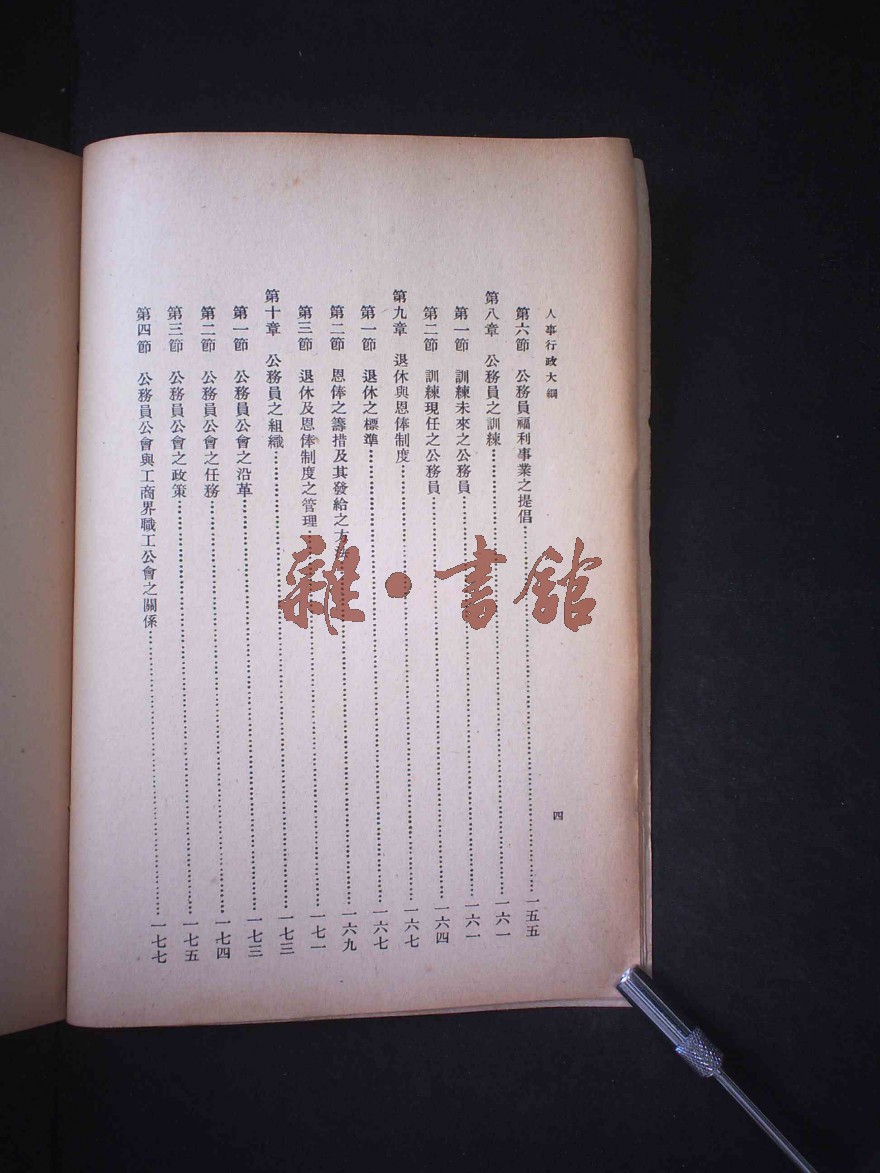 人事行政大綱
四
第六節 公務員福利事業之提倡……一五五
第八章 公務員之訓練……一六一
第一節 訓練未來之公務員……一六一
第二節 訓練現任之公務員……一六四
第九章 退休與恩俸制度……一六七
第一節 退休之標準……一六七
第二節 恩俸之籌措及其發給之方法……一六九
第三節 退休及恩俸制度之管理……一七一
第十章 公務員之組織……一七三
第一節 公務員公會之沿革……一七三
第二節 公務員公會之任務……一七四
第三節 公務員公會之政策……一七五
第四節 公務員公會與工商界職工公會之關係……一七七
雜·書館